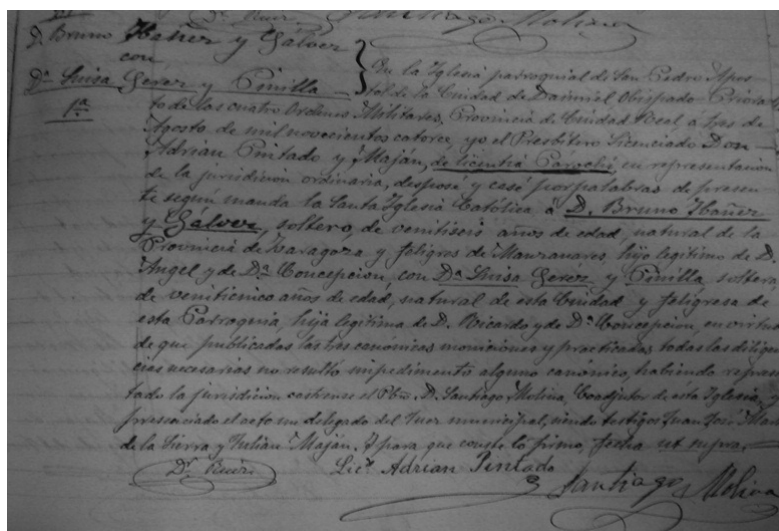 Santiago Molina
D. Bruno Ibañez y Gálvez
con
Dª Luisa Gerez y Pinilla
1ª
En la Iglesia parroquial de San Pedro Apos
tol de la Ciudad de Daimiel, Obispado Priora
to de las cuatro Ordenes Militares, Provincia de Ciudad Real, a tres de
Agosto de mil novecientos catorce, yo el Presbitero Licenciado Don
Adrian Pintado y Maján, de licentia Parochi, en representacion
de la jurisdicion ordinaria, desposé y casé por palabras de presen
te según manda la Santa Iglesia Católica á D. Bruno Ibañez
y Gálvez, soltero, de veintiseis años de edad, natural de la
Provincia de Zaragoza y feligres de Manzanares, hijo legitimo de D.
Angel y de Dª Concepcion, con Dª Luisa Gerez y Pinilla, soltera,
de veinticinco años de edad, natural de esta Ciudad y feligresa de
esta Parroquia, hija legitima de D. Ricardo y de Dª Concepcion, en virtud
de que publicadas las tres canónicas moniciones y practicadas todas las diligen
cias necesarias no resultó impedimento alguno canónico, habiendo represen
tado la jurisdicion castrense el Pbro. D. Santiago Molina, Coadjutor de esta Iglesia, y
presenciado el acto un delegado del Juez municipal, siendo testigos Juan José
de la Sierra y Julián Maján. Y para que conste lo firmo, fecha ut supra.
Licdo Adrian Pintado
Santiago Molina